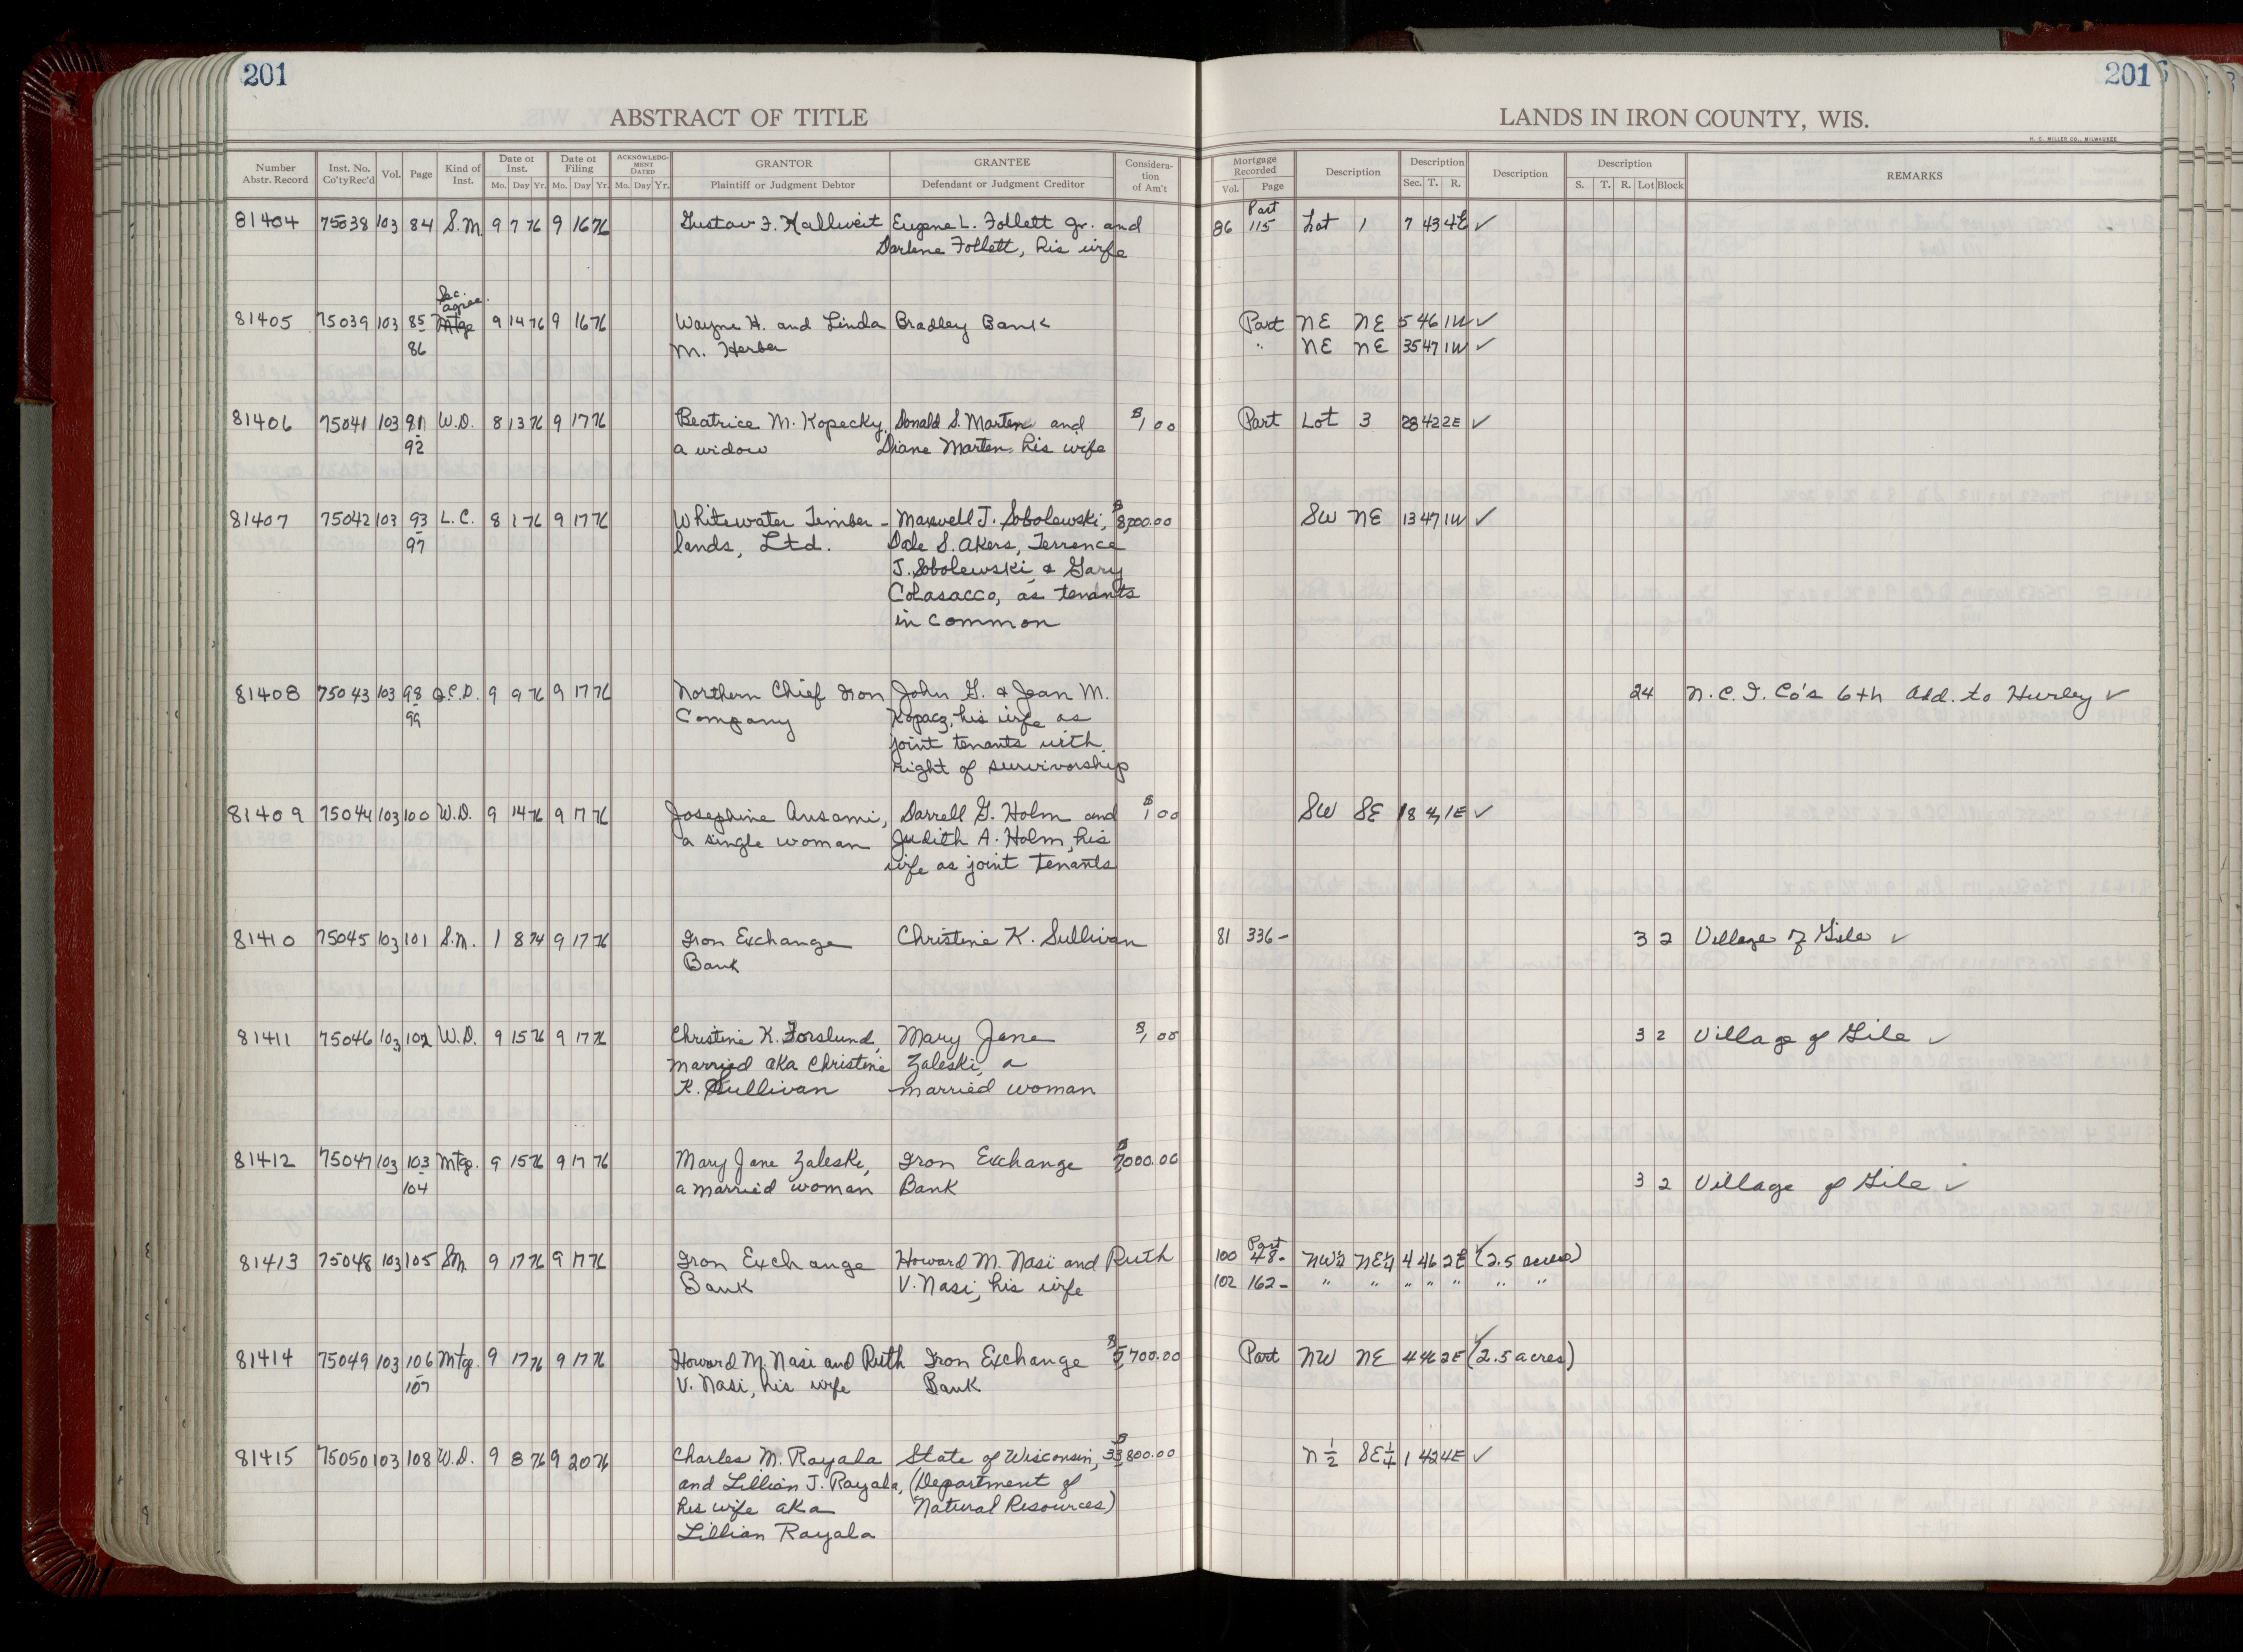 201
201
ABSTRACT OF TITLE
LANDS IN IRON COUNTY, WIS.
H. C. MILLER CO., MILWAUKEE
Number Abstr. Record | Inst. No. Co'ty Rec'd | Vol. | Page | Kind of Inst. | Date of Inst. Mo. Day Yr. | Date of Filing Mo. Day Yr. | ACKNOWLEDGMENT DATED Mo. Day Yr. | GRANTOR Plaintiff or Judgment Debtor | GRANTEE Defendant or Judgment Creditor | Consideration of Am't | Mortgage Recorded Vol. Page | Description | Description Sec. T. R. | Description | Description S. T. R. Lot Block | REMARKS
Part
81404 75038 103 84 S.M. 9 7 76 9 16 76 Gustav F. Kallweit Eugene L. Follett Jr. and 86 115 Lot 1 7 43 4E ✓
Darlene Follett, his wife
Sec. agree.
81405 75039 103 85 Mtge 9 14 76 9 16 76 Wayne H. and Linda Bradley Bank Part NE NE 5 46 1W ✓
86 M. Herber " NE NE 35 47 1W ✓
81406 75041 103 91 W.D. 8 13 76 9 17 76 Beatrice M. Kopecky, Donald S. Marten and $1.00 Part Lot 3 28 42 2E ✓
92 a widow Diane Marten, his wife
81407 75042 103 93 L.C. 8 1 76 9 17 76 Whitewater Timber- Maxwell J. Sobolewski, $8,200.00 SW NE 13 47 1W ✓
97 lands, Ltd. Dale S. Akers, Terrence
J. Sobolewski & Gary
Colasacco, as tenants
in common
81408 75043 103 98 Q.C.D. 9 9 76 9 17 76 Northern Chief Iron John G. & Jean M. 24 N.C.I. Co's 6th Add. to Hurley ✓
99 Company Kopacz, his wife as
joint tenants with
right of survivorship
81409 75044 103 100 W.D. 9 14 76 9 17 76 Josephine Ansami, Darrell G. Holm and $1.00 SW SE 18 1E ✓
a single woman Judith A. Holm, his
wife as joint tenants
81410 75045 103 101 S.M. 1 8 74 9 17 76 Iron Exchange Christine K. Sullivan 81 336- 3 2 Village of Gile ✓
Bank
81411 75046 103 102 W.D. 9 15 76 9 17 76 Christine K. Forslund, Mary Jane $1.00 3 2 Village of Gile ✓
married aka Christine Zaleski, a
K. Sullivan married woman
81412 75047 103 103 Mtge. 9 15 76 9 17 76 Mary Jane Zaleski, Iron Exchange $7000.00
104 a married woman Bank 3 2 Village of Gile ✓
Part
81413 75048 103 105 SM. 9 17 76 9 17 76 Iron Exchange Howard M. Nasi and Ruth 100 48- NW¼ NE¼ 4 46 2E ✓ (2.5 acres)
Bank V. Nasi, his wife 102 162- " " " " " " "
81414 75049 103 106 Mtge. 9 17 76 9 17 76 Howard M. Nasi and Ruth Iron Exchange $5,700.00 Part NW NE 4 46 2E ✓ (2.5 acres)
107 V. Nasi, his wife Bank
81415 75050 103 108 W.D. 9 8 76 9 20 76 Charles M. Rayala State of Wisconsin, $33,800.00 N ½ SE¼ 1 42 4E ✓
and Lillian J. Rayala, (Department of
his wife aka Natural Resources)
Lillian Rayala